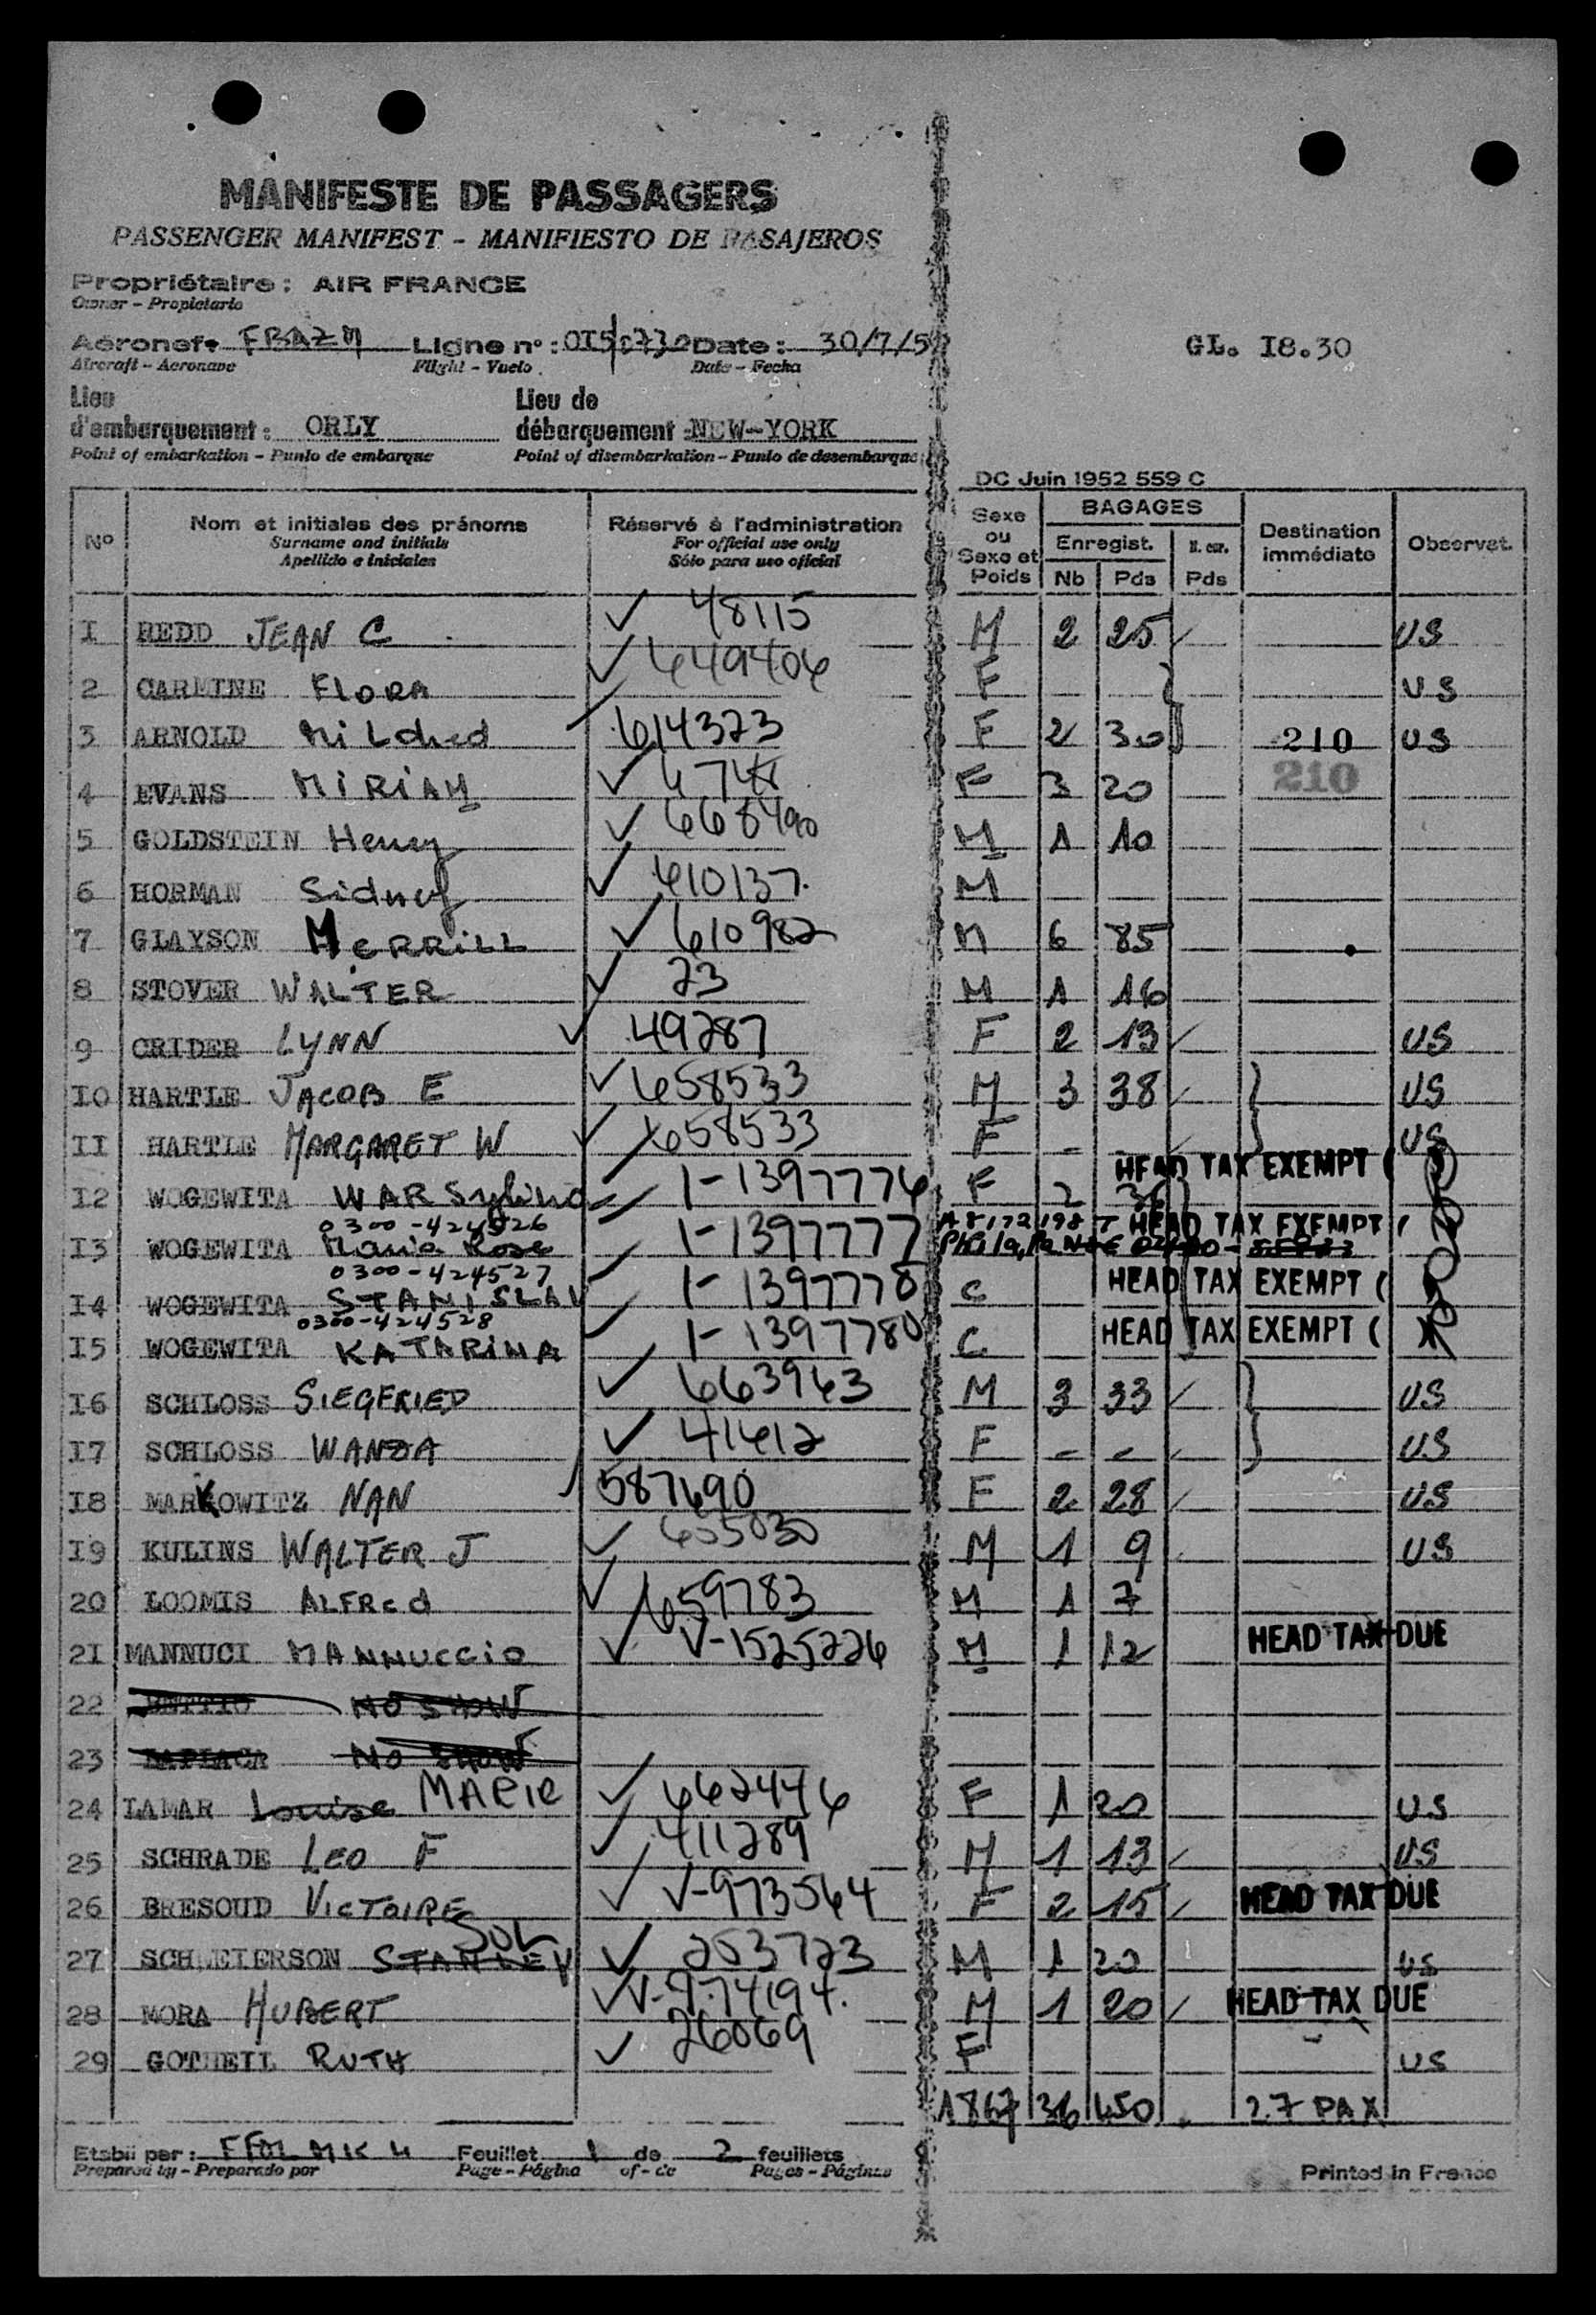 MANIFESTE DE PASSAGERS
PASSENGER MANIFEST - MANIFIESTO DE PASAJEROS
Propriétaire : AIR FRANCE
Owner - Propietario
Aéronef FBAZM Ligne n° : 0730 Date : 30/7/5
Aircraft - Aeronave Flight - Vuelo Date - Fecha
GL. I8.30
Lieu d'embarquement : ORLY Lieu de débarquement : NEW-YORK
Point of embarkation - Punto de embarque Point of disembarkation - Punto de desembarque
DC Juin 1952 559 C
N° Nom et initiales des prénoms Réservé à l'administration Sexe ou Sexe et Poids BAGAGES Destination immédiate Observat.
Surname and initials For official use only Enregist. N. enr.
Apellido e iniciales Sólo para uso oficial Nb Pds Pds
I REDD JEAN C 48115 M 2 25 US
2 CARMINE FLORA 649406 F US
3 ARNOLD Mildred 614323 F 2 30 210 US
4 EVANS MIRIAM F 3 20 210
5 GOLDSTEIN Henry M 1 10
6 HORMAN Sidney 610137 M
7 GLAYSON MERRILL 610982 M 6 85
8 STOVER WALTER 23 M 1 16
9 CRIDER LYNN 49287 F 2 13 US
I0 HARTLE JACOB E 658533 M 3 38 US
II HARTLE MARGARET W 658533 F - US
HEAD TAX EXEMPT (
I2 WOGEWITA I-1397776 F 2 36
0300-424526
I3 WOGEWITA Maria Rose I-1397777 HEAD TAX EXEMPT (
0300-424527
I4 WOGEWITA STANISLAV I-1397778 C HEAD TAX EXEMPT (
0300-424528
I5 WOGEWITA KATARINA I-1397780 C HEAD TAX EXEMPT (
I6 SCHLOSS SIEGFRIED 663963 M 3 33 US
I7 SCHLOSS WANDA 41612 F - - US
I8 MARKOWITZ NAN 587690 F 2 28 US
I9 KULINS WALTER J 655030 M 1 9 US
20 LOOMIS ALFRed 659783 M 1 7
2I MANNUCI MANNUCCIO V-1525226 M 1 12 HEAD TAX DUE
22 NO SHOW
23 NO SHOW
24 LAMAR Louise MARIE 662446 F 1 20 US
25 SCHRADE LEO F 411289 M 1 13 US
26 BRESOUD VICTOIRE V-973564 F 2 15 HEAD TAX DUE
27 SCHLEIERSON STANLEY SOL 253723 M 1 20 US
28 MORA HUBERT V-974194 M 1 20 HEAD TAX DUE
29 GOTHEIL RUTH 26069 F US
1867 36 450 27 PAX
Etabli par : Feuillet 1 de 2 feuillets
Prepared by - Preparado por Page - Página of - de Pages - Páginas
Printed in France